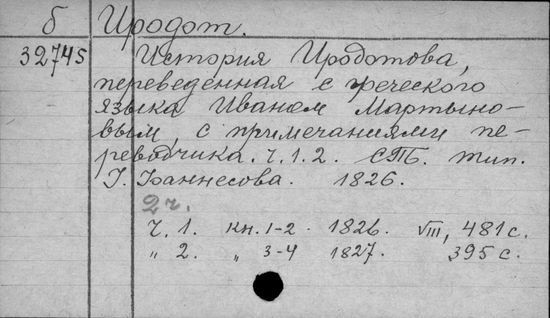 б Иродот.
32745 История Иродотова,
переведенная с греческого
языка Иваном Мартыно-
вым, с примечаниями пе-
реводчика. Ч. 1. 2. СПБ. тип.
І. Іоаннесова. 1826.
2 ч.
Ч. 1. кн. 1-2. 1826. VIII, 481 с.
„ 2. „ 3-4 1827. 395 с.